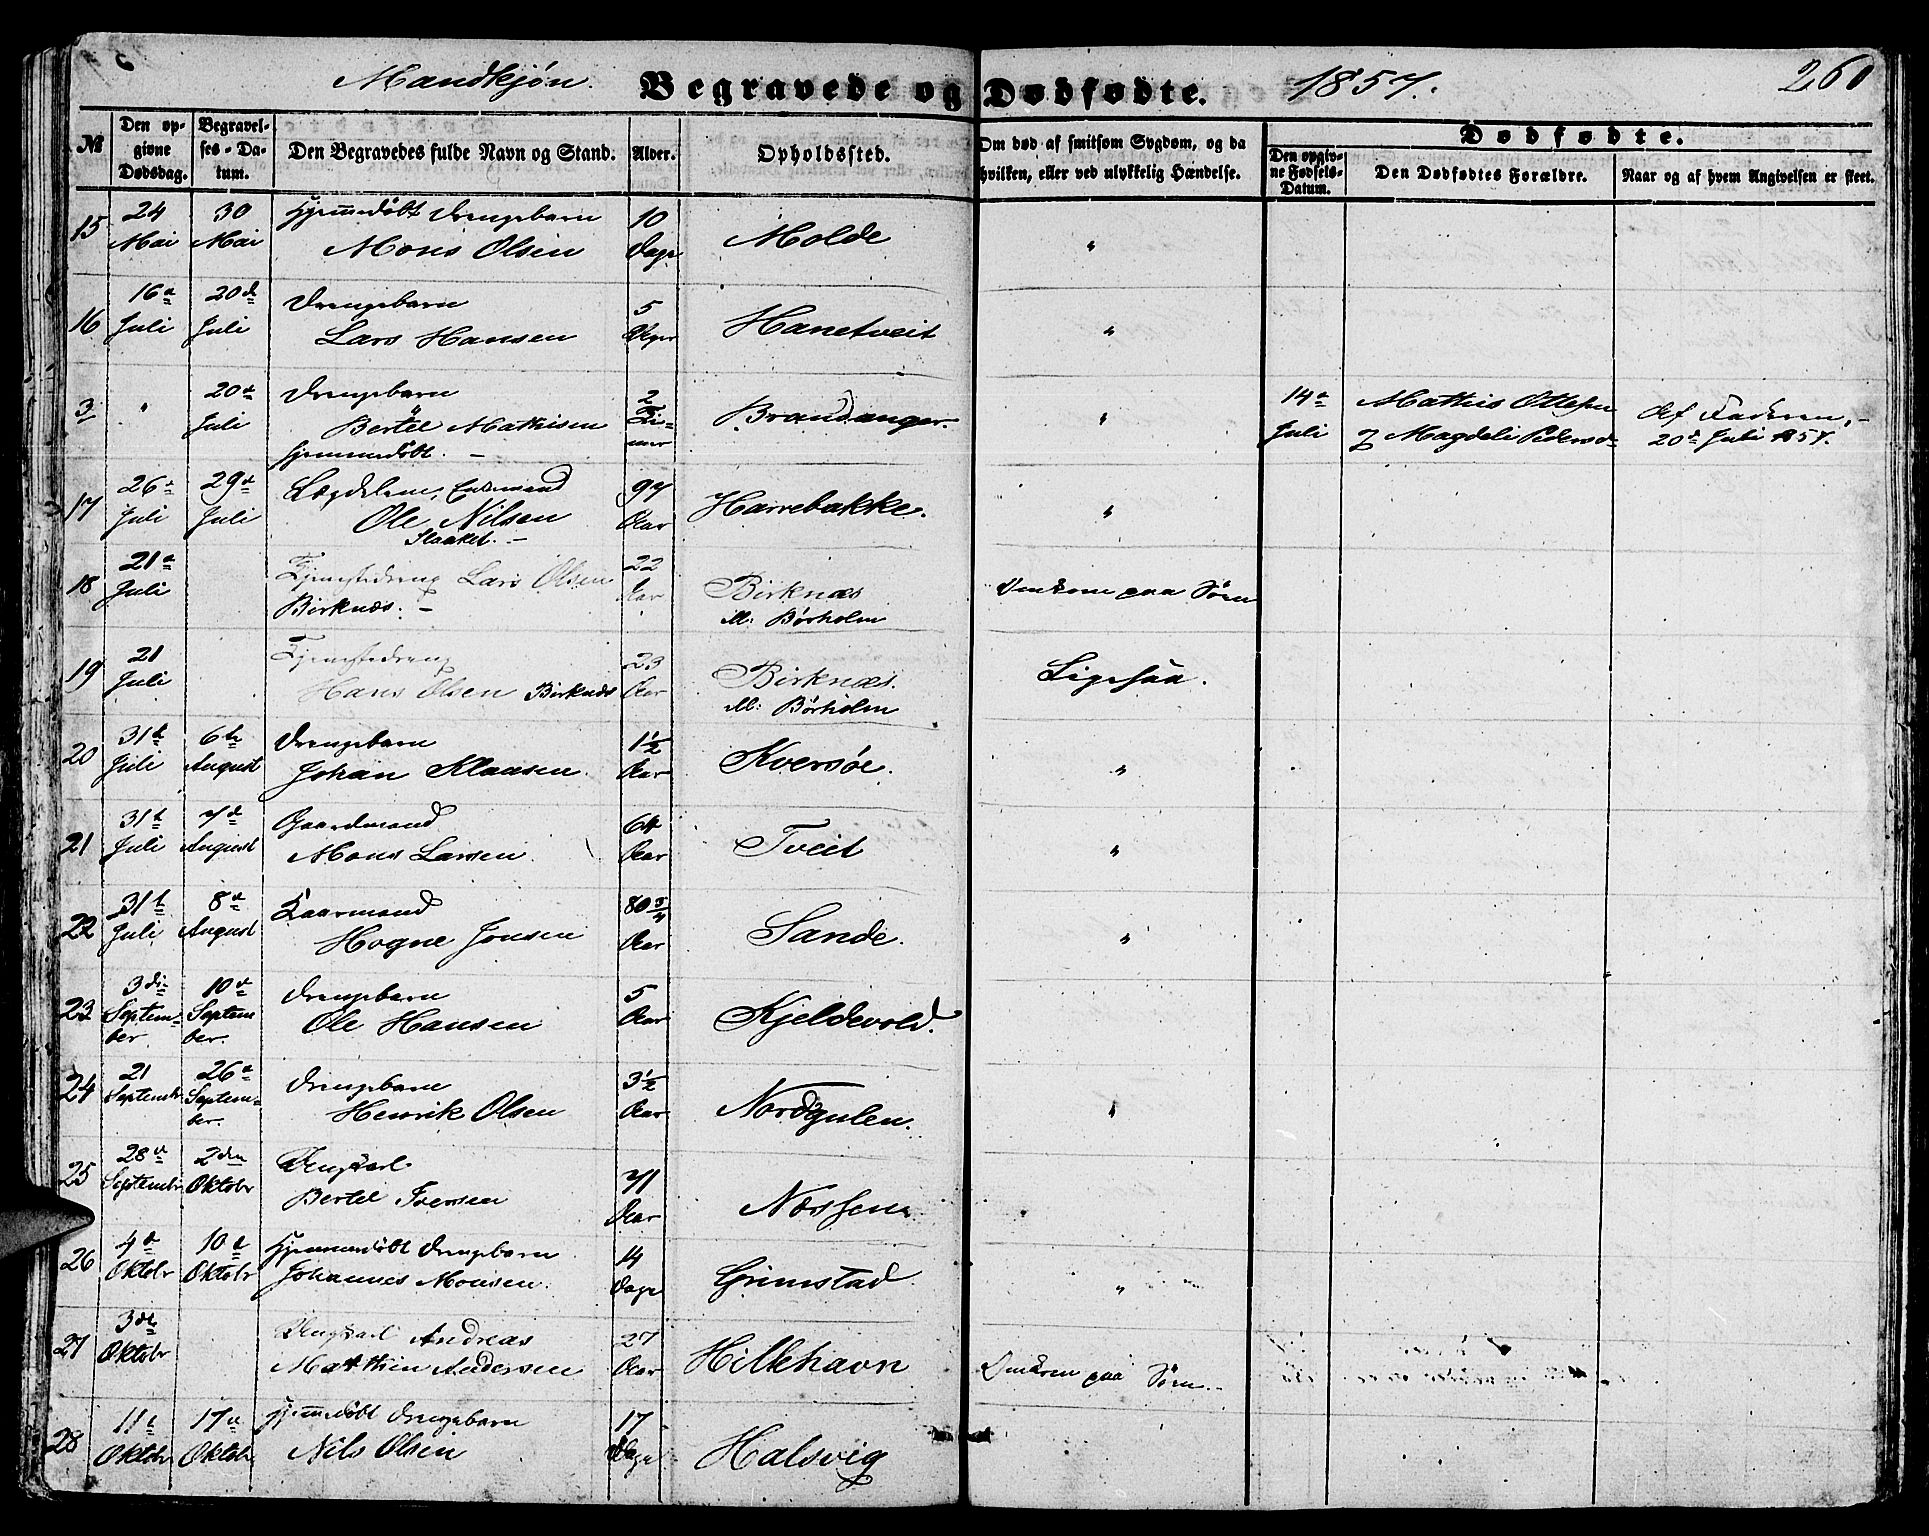 Mandkjøn. Begravede og Dødfødte. 1857. 260
№ Den opgivne Dødsdag. Begravelses-Datum. Den Begravedes fulde Navn og Stand. Alder. Opholdssted. Om død af smitsom Sygdom, og da hvilken, eller ved ulykkelig Hændelse. Dødfødte. Den opgivne Fødsels-Datum. Den Dødfødtes Forældre. Naar og af hvem Angivelsen er skeet.
15 24 Mai 30 Mai Hjemmedøbt Drengebarn
Mons Olsen 10 Dage Molde "
16 16de Juli 20de Juli Drengebarn
Lars Hansen 5 Uger Hanetveit "
3 " 20de Juli Drengebarn
Bertel Mathisen
hjemmedøbt. 2 Timer Brandanger. " 14de Juli Mathis Ottesen
og Magdeli Pedersd. Af Faderen,
20de Juli 1857.
17 26de Juli 29de Juli Lægdslem, Enkemand
Ole Nilsen
Slaaket. 97 Aar Harrebakke. "
18 21de Juli Tjenestedreng Lars Olsen
Birknæs. 22 Aar Birknæs
M: Børholm Omkom paa Søen
19 21 Juli Tjenestedreng
Hans Olsen Birknæs 23 Aar Birknæs.
M: Børholm Ligesaa.
20 31te Juli 6te August Drengebarn
Johan Klausen. 1½ Aar Kversøe. "
21 31te Juli 7de August Gaardmand
Mons Larsen 64 Aar Tveit "
22 31te Juli 8de August Kaarmand
Hogne Jonsen 80 Aar Sande. "
23 3die September 10de September Drengebarn
Ole Hansen 5 Aar Kjeldevold.
24 21 Septembr 26de September Drengebarn
Henrik Olsen 3½ Aar Nordgulen. "
25 28de Septembr 2den Oktobr Ungkarl
Bertel Iversen 71 Aar
26 4de Oktobr 10de Oktobr Hjemmedøbt Drengebarn
Johannes Monsen. 14 Dage Grimstad. "
27 3die Oktobr Ungkarl Andreas
Matthias Andersen 27 Aar Hilkhavn Omkom paa Søen.
28 11te Oktobr 17de Oktobr Hjemmedøbt Drengebarn
Nils Olsen 17 Dage Halsvig